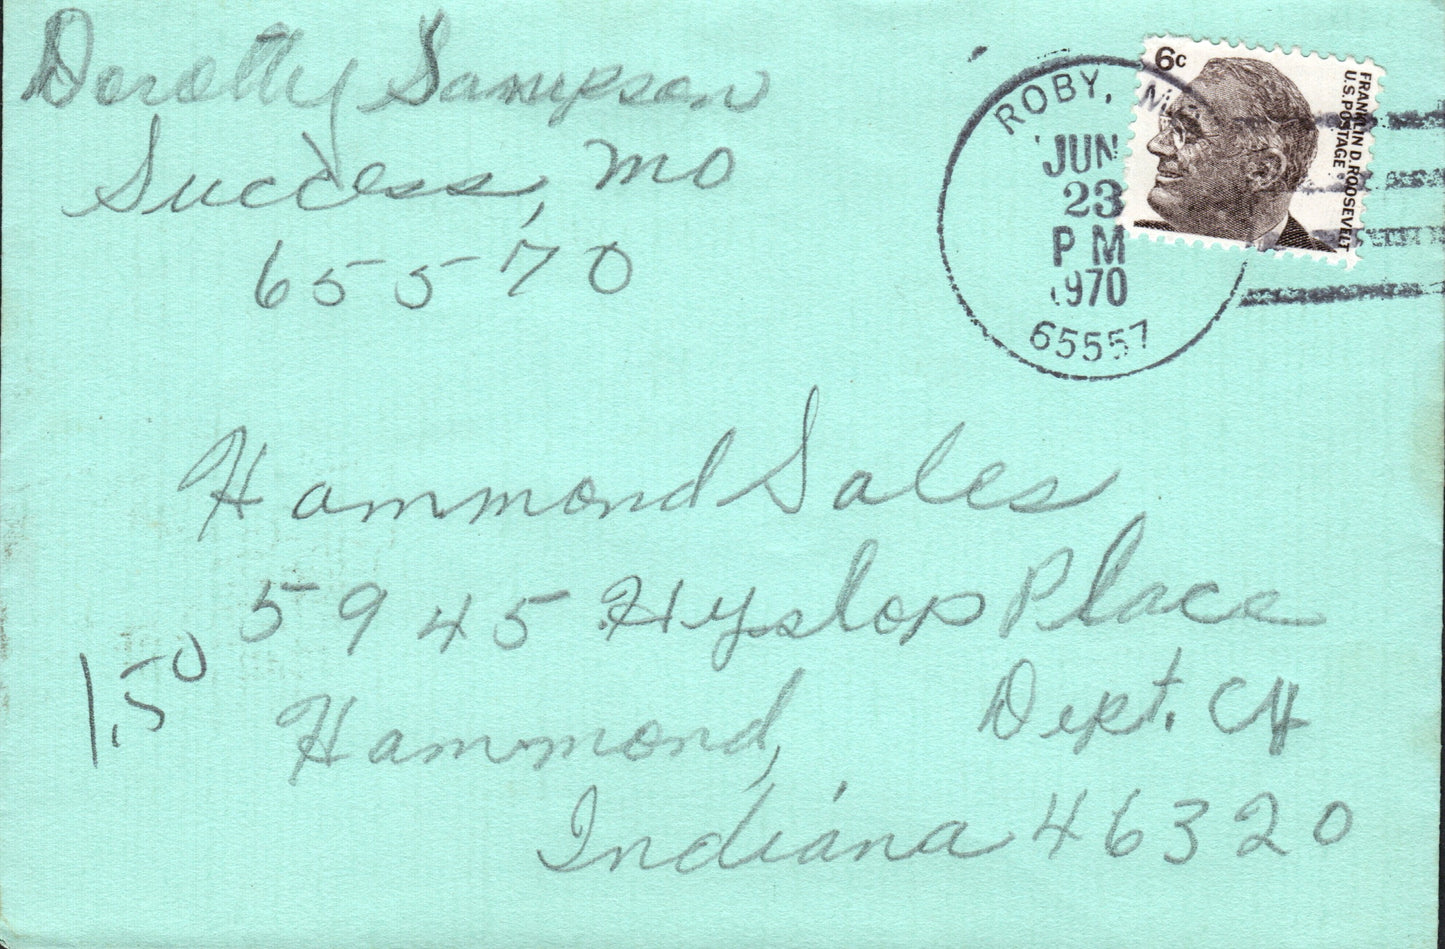 Dorothy Sampson
Success, Mo
65570
6c
FRANKLIN D. ROOSEVELT
U.S. POSTAGE
ROBY, M
JUN
23
PM
1970
65557
Hammond Sales
5945 Hyslop Place
1.50
Hammond, Dept. CH
Indiana 46320